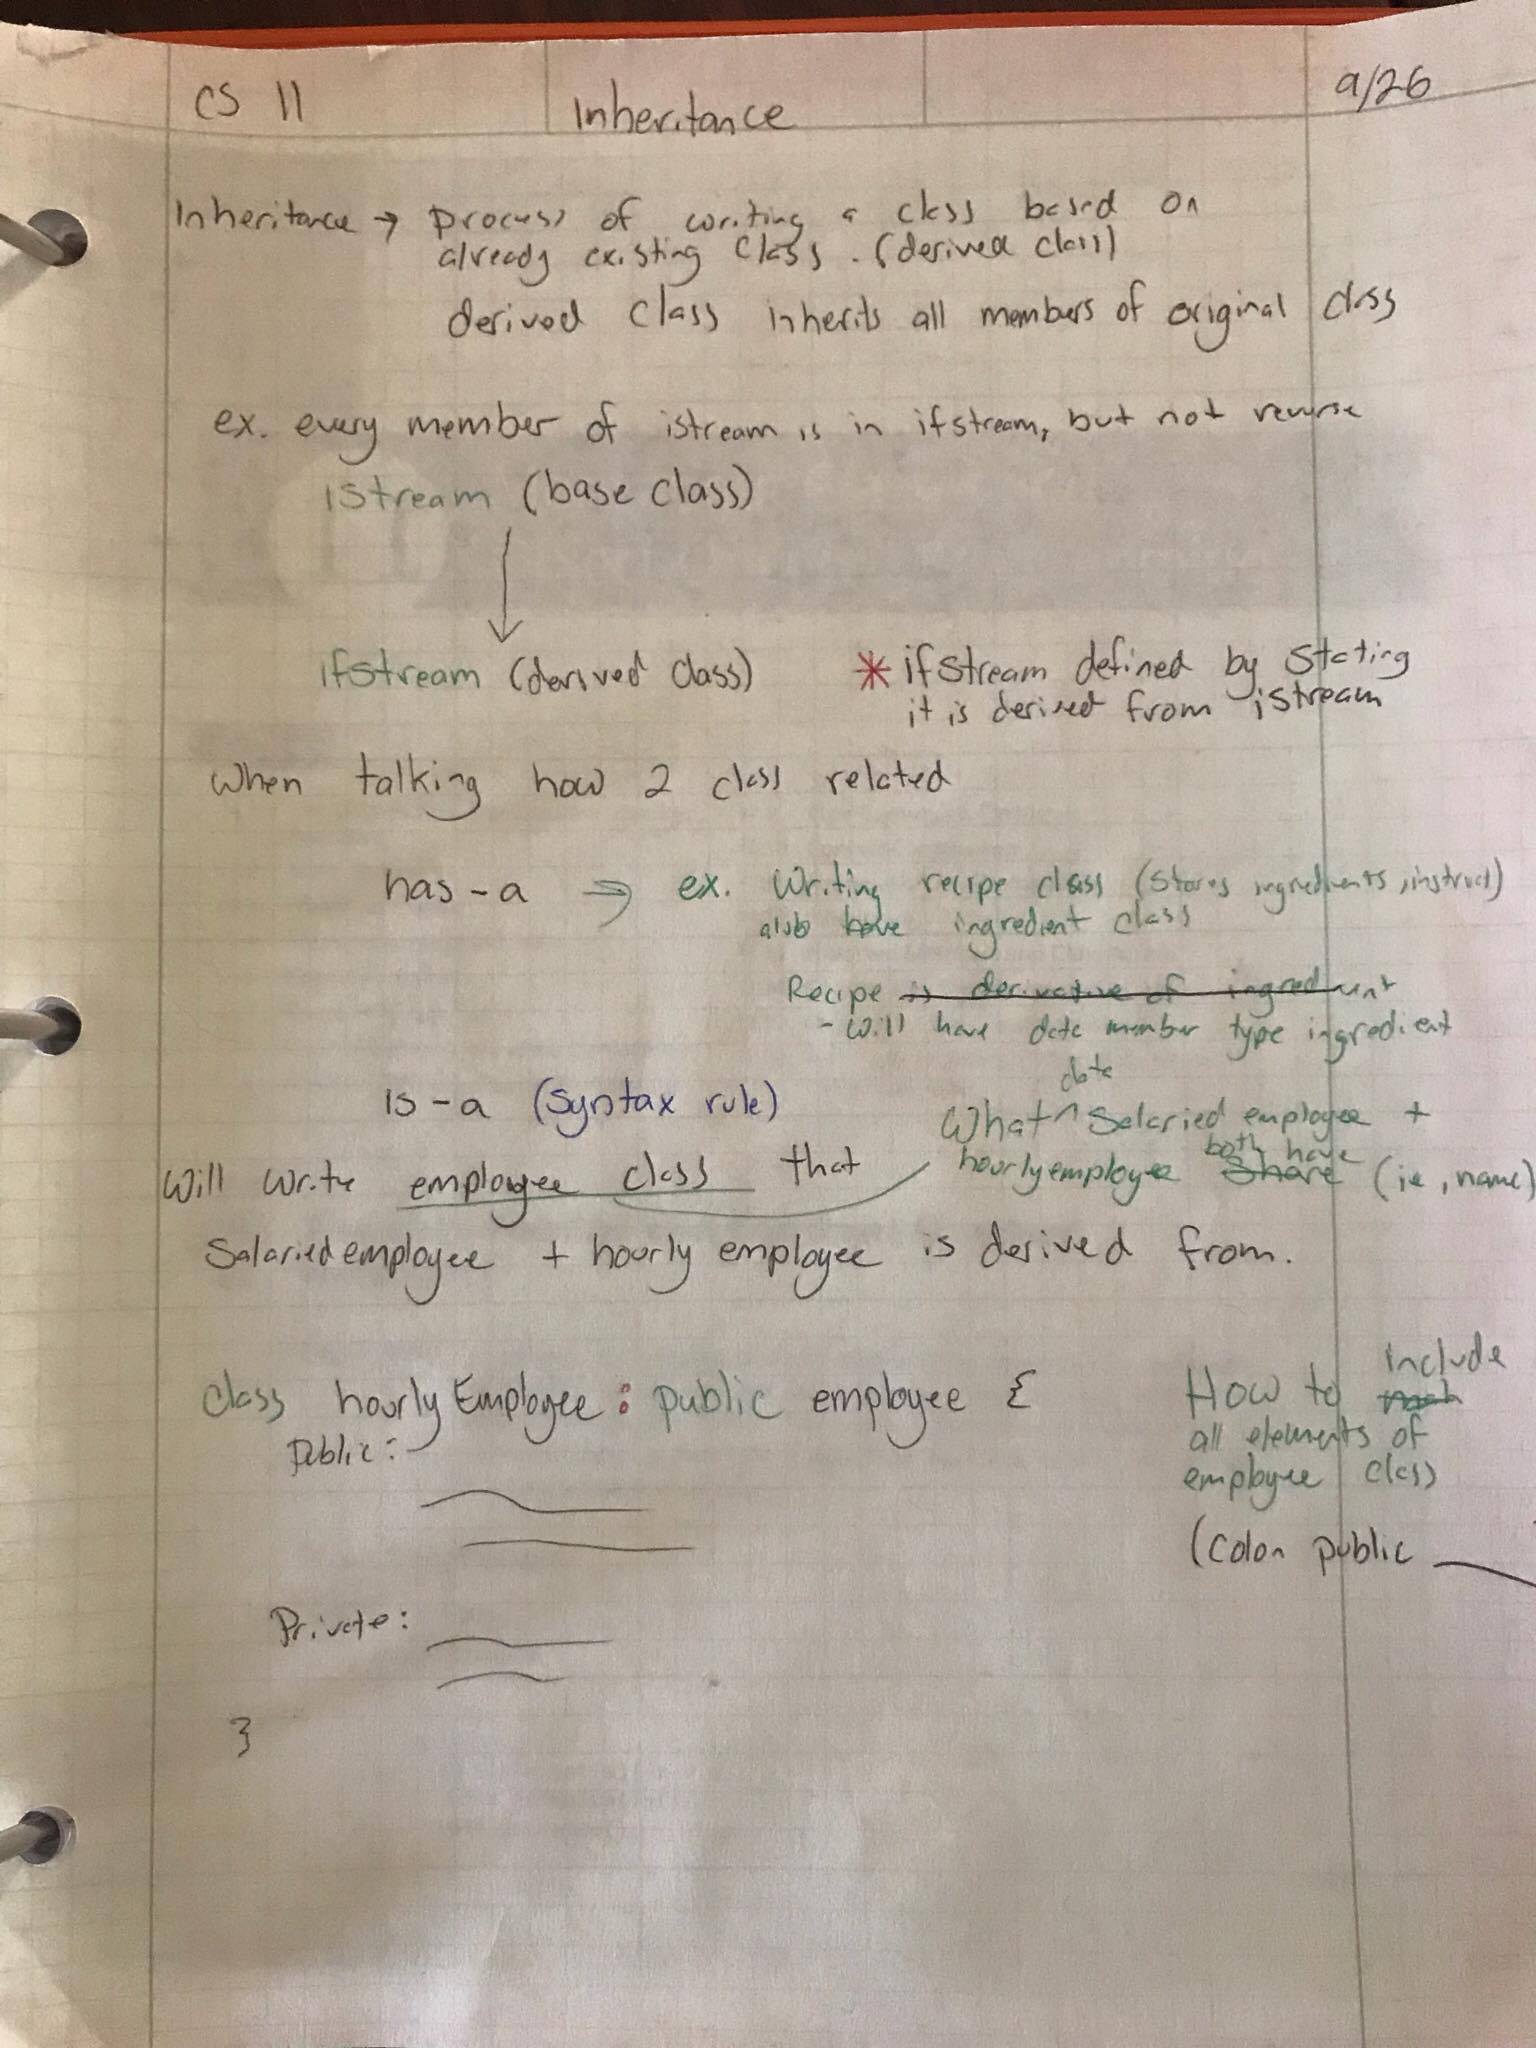 CS 11
Inheritance
9/26
Inheritance → process of writing a class based on
already existing class. (derived class)
derived class inherits all members of original class
ex. every member of istream is in ifstream, but not reverse
istream (base class)
ifstream (derived class)
* ifstream defined by stating
it is derived from istream
When talking how 2 class related
has-a ⇒ ex. Writing recipe class (stores ingredients, instruct)
also have ingredient class
Recipe is derivative of ingredient
- will have data member type ingredient
is-a (syntax rule)
data
What ^ salaried employee +
both have
hourly employee share (ie, name)
Will write employee class that
Salaried employee + hourly employee is derived from.
class hourlyEmployee : public employee {
Public:
Private:
}
include
How to
all elements of
employee class
(colon public